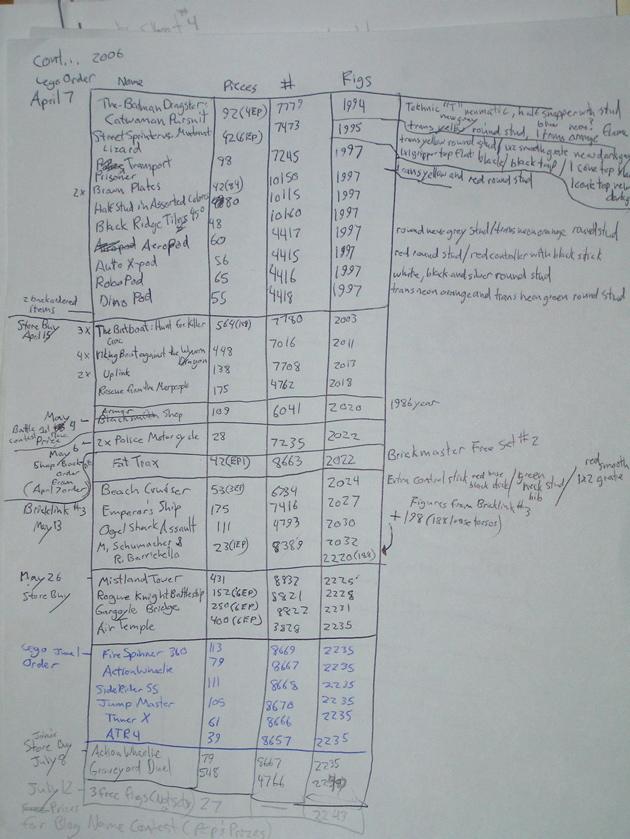 Cont... 2006
Lego Order
April 7
Name Pieces # Figs
The Batman Dragster:
Catwoman Pursuit 92(4EP) 7779 1994 Teknic "T" neumatic, half snapper with stud
Street Sprinter vs. Mutant
Lizard 42(6EP) 7473 1995 trans yellow round stud, 1 trans orange flame
Prisoner Transport 98 7245 1997
2x Brawn Plates 42(84) 10150 1997 trans yellow and red round stud
Half Stud in Assorted Colors 80 10115 1997
Black Ridge Tiles 45° 48 10160 1997
AeroPod 60 4417 1997 round new grey stud/trans neon orange round stud
Auto X-pod 56 4415 1997 red round stud/red controller with black stick
RoboPod 65 4416 1997 white, black and silver round stud
Dino Pod 55 4418 1997 trans neon orange and trans neon green round stud
2 backordered
items
Store Buy
April 15
3x The Batboat: Hunt for Killer
Croc 564(188) 7780 2003
4x Viking Boat against the Wyvern
Dragon 498 7016 2011
2x Uplink 138 7708 2017
Rescue from the Merpeople 175 4762 2018
May 4
contest Prize
Armor Shop 109 6041 2020 1986 year
May 6
2x Police Motorcycle 28 7235 2022 Brickmaster Free Set #2
order
from
(April 7 order)
Fat Trax 42(EP1) 8663 2022
Beach Cruiser 6734 2024 Extra control stick
Emperor's Ship 175 7416 2027 Figures from Bricklink #3
Bricklink #3
May 13
Ogel Shark Assault 111 4793 2030 +198 (188 loose torsos)
M. Schumacher &
R. Barrichello 23(1EP) 8389 2032
2220(188)
May 26
Store Buy
Mistland Tower 431 8832 2225
Rogue Knight Battleship 152(6EP) 8821 2228
Gargoyle Bridge 250(6EP) 8822 2231
Air Temple 400(6EP) 3828 2235
Lego June 1
Order
Fire Spinner 360 113 8669 2235
Action Wheelie 79 8667 2235
Side Rider 55 111 8668 2235
Jump Master 105 8670 2235
Tuner X 61 8666 2235
ATR4 39 8657 2235
Store Buy
July 8
Action Wheelie 79 8667 2235
Graveyard Duel 548 4766
July 12 - 3 free figs (Not sets) 27 — 2243
Prizes
for Blog Name Contest (Pep's Prizes)